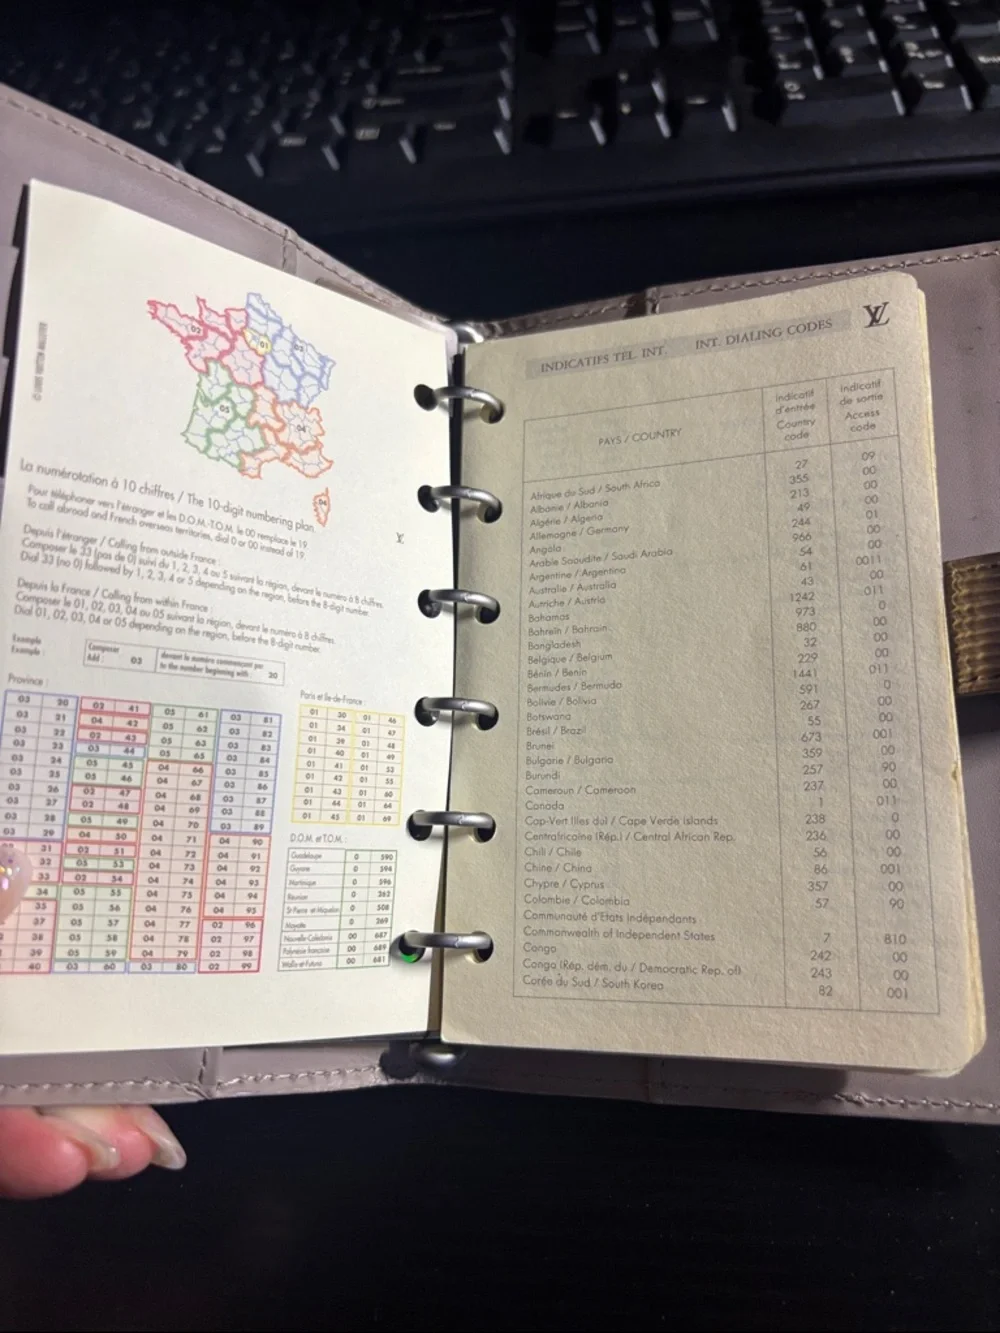 La numérotation à 10 chiffres / The 10-digit numbering plan
Pour téléphoner vers l'étranger et les D.O.M.-T.O.M. le 00 remplace le 19
To call abroad and French overseas territories, dial 0 or 00 instead of 19
Depuis l'étranger / Calling from outside France :
Composer le 33 (pas de 0) suivi du 1, 2, 3, 4 ou 5 suivant la région, devant le numéro à 8 chiffres.
Dial 33 (no 0) followed by 1, 2, 3, 4 or 5 depending on the region, before the 8-digit number.
Depuis la France / Calling from within France :
Composer le 01, 02, 03, 04 ou 05 suivant la région, devant le numéro à 8 chiffres.
Dial 01, 02, 03, 04 or 05 depending on the region, before the 8-digit number.
Exemple
Example :
Composer
Add : 03
devant le numéro commençant par
to the number beginning with : 20
Province :
03 20 02 41 05 61 03 81
03 21 04 42 05 62 03 82
03 22 02 43 05 63 03 83
03 23 03 44 05 65 03 84
03 24 05 45 04 66 03 85
03 25 05 46 04 67 03 86
03 26 02 47 04 68 03 87
03 27 02 48 04 69 03 88
03 28 05 49 04 70 03 89
03 29 04 50 04 71 04 90
31 02 51 04 72 04 91
32 05 53 04 73 04 92
33 02 54 04 74 04 93
34 05 55 04 75 04 94
35 05 56 04 76 04 95
37 05 57 04 77 02 96
38 05 58 04 78 02 97
39 05 59 04 79 02 98
40 03 60 03 80 02 99
Paris et Ile-de-France :
01 30 01 46
01 34 01 47
01 39 01 48
01 40 01 49
01 41 01 53
01 42 01 55
01 43 01 60
01 44 01 64
01 45 01 69
D.O.M. et T.O.M. :
Guadeloupe 0 590
Guyane 0 594
Martinique 0 596
Réunion 0 262
St-Pierre et Miquelon 0 508
Mayotte 0 269
Nouvelle-Calédonie 00 687
Polynésie française 00 689
Wallis-et-Futuna 00 681
LV
INDICATIFS TEL. INT. INT. DIALING CODES
PAYS / COUNTRY
Indicatif d'entrée
Country code
Indicatif de sortie
Access code
Afrique du Sud / South Africa 27 09
Albanie / Albania 355 00
Algérie / Algeria 213 00
Allemagne / Germany 49 00
Angola 244 01
Arabie Saoudite / Saudi Arabia 966 00
Argentine / Argentina 54 00
Australie / Australia 61 0011
Autriche / Austria 43 00
Bahamas 1242 011
Bahreïn / Bahrain 973 0
Bangladesh 880 00
Belgique / Belgium 32 00
Bénin / Benin 229 00
Bermudes / Bermuda 1441 011
Bolivie / Bolivia 591 0
Botswana 267 00
Brésil / Brazil 55 00
Brunei 673 001
Bulgarie / Bulgaria 359 00
Burundi 257 90
Cameroun / Cameroon 237 00
Canada 1 011
Cap-Vert (Iles du) / Cape Verde Islands 238 0
Centrafricaine (Rép.) / Central African Rep. 236 00
Chili / Chile 56 00
Chine / China 86 001
Chypre / Cyprus 357 00
Colombie / Colombia 57 90
Communauté d'Etats Indépendants
Commonwealth of Independent States 7 810
Congo 242 00
Congo (Rép. dém. du / Democratic Rep. of) 243 00
Corée du Sud / South Korea 82 001